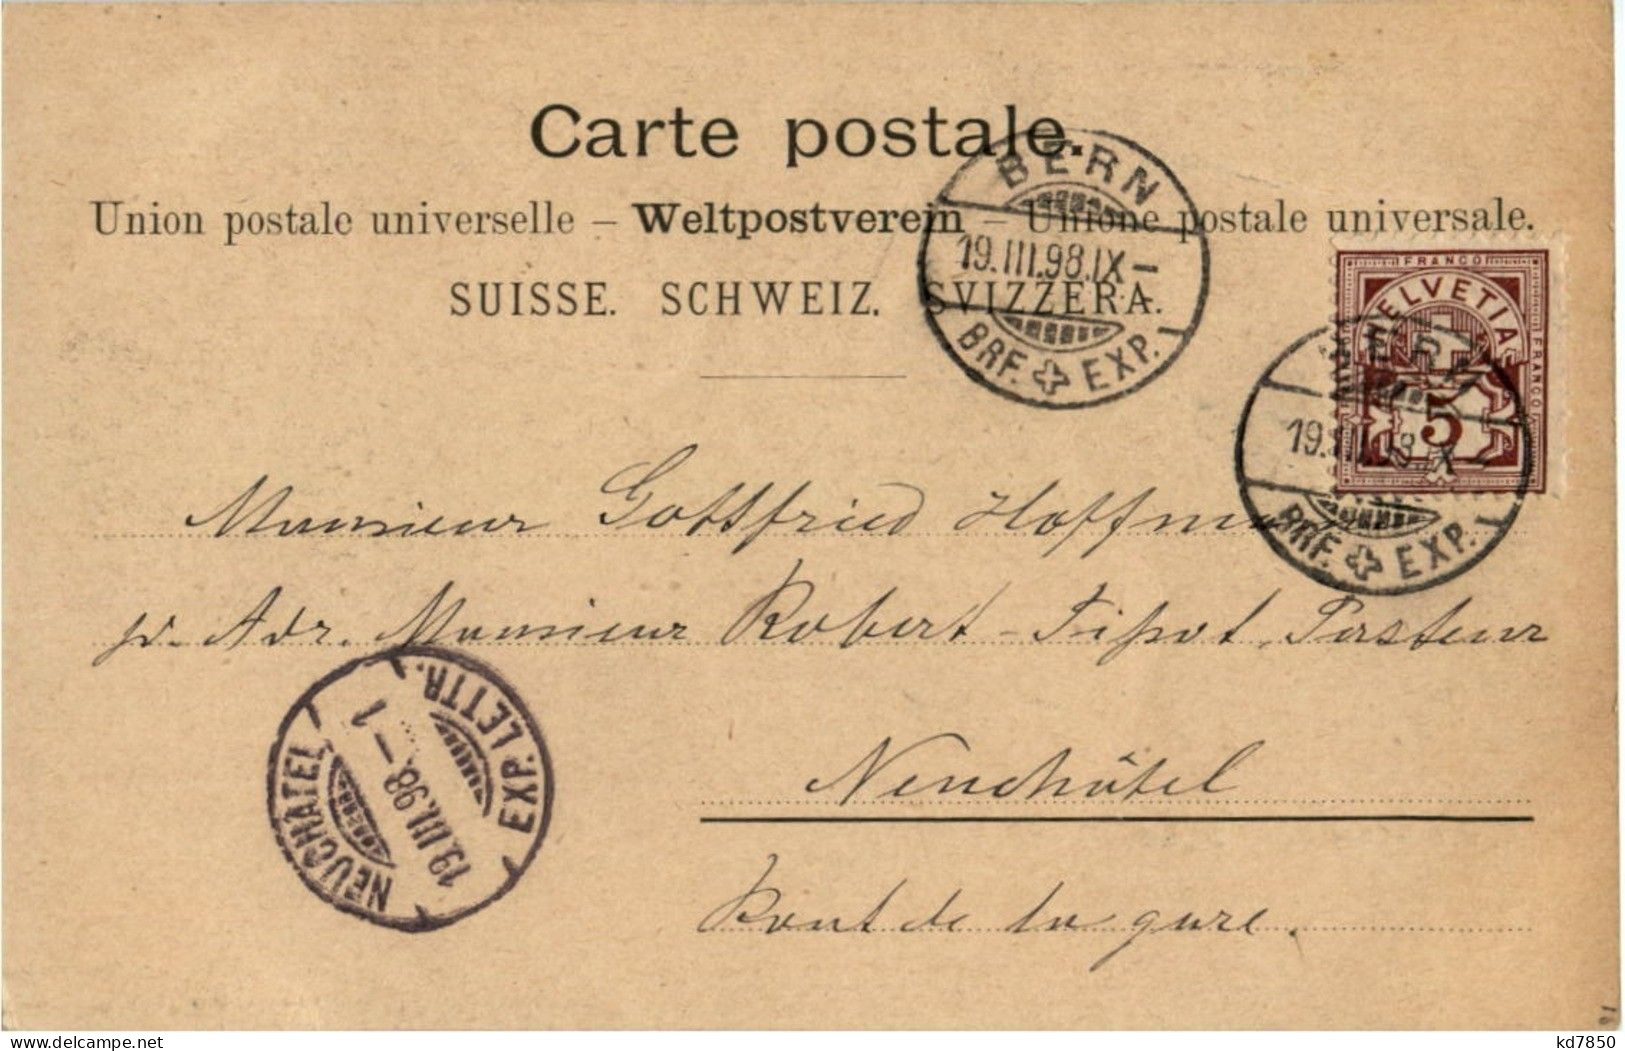 Carte postale.
Union postale universelle – Weltpostverein – Unione postale universale.
SUISSE. SCHWEIZ. SVIZZERA.
BERN
19.III.98.IX–
BRF. EXP. 1
FRANCO
HELVETIA
FRANCO
5
19.III.98.IX–
BRF. EXP. 1
Monsieur Gottfried Hoffmann
pr. Adr. Monsieur Robert-Tissot, Pasteur
Neuchâtel
NEUCHATEL
19.III.98.–1
EXP. LETTR.
de la gare.
kd7850